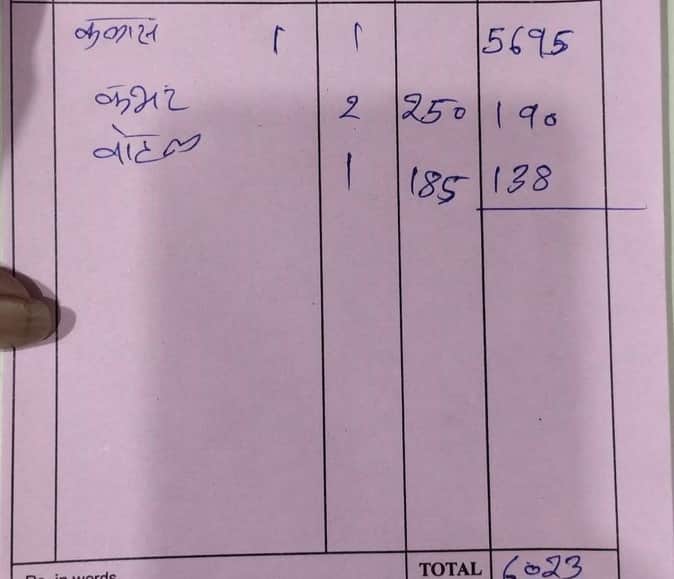 कलास 1 1 5695
कभर 2 250 190
बोटल 1 185 138
TOTAL 6023
Rs. in words